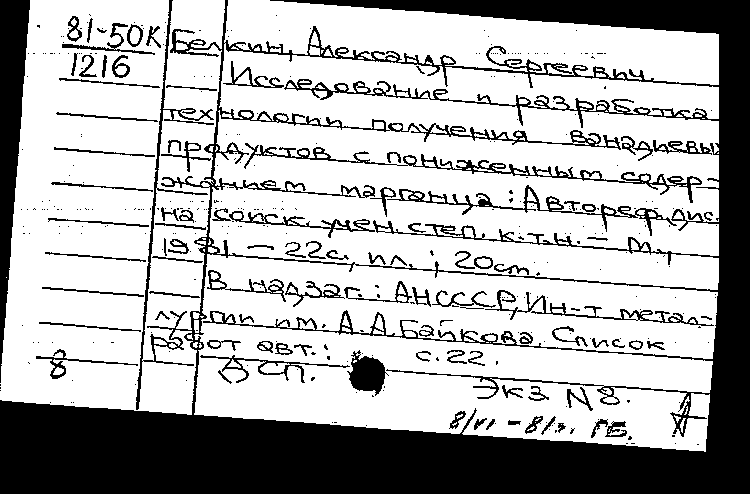 81-50К Белкин, Александр Сергеевич.
1216
Исследование и разработка
технологии получения ванадиевых
продуктов с пониженным содер-
жанием марганца : Автореф. дис.
на соиск. учен. степ. к.т.н. - М.,
1981. - 22с., ил. ; 20см.
В надзаг.: АН СССР, Ин-т метал-
лургии им. А.А.Байкова. Список
работ авт.: с.22.
8 ДСП.
Экз N 8.